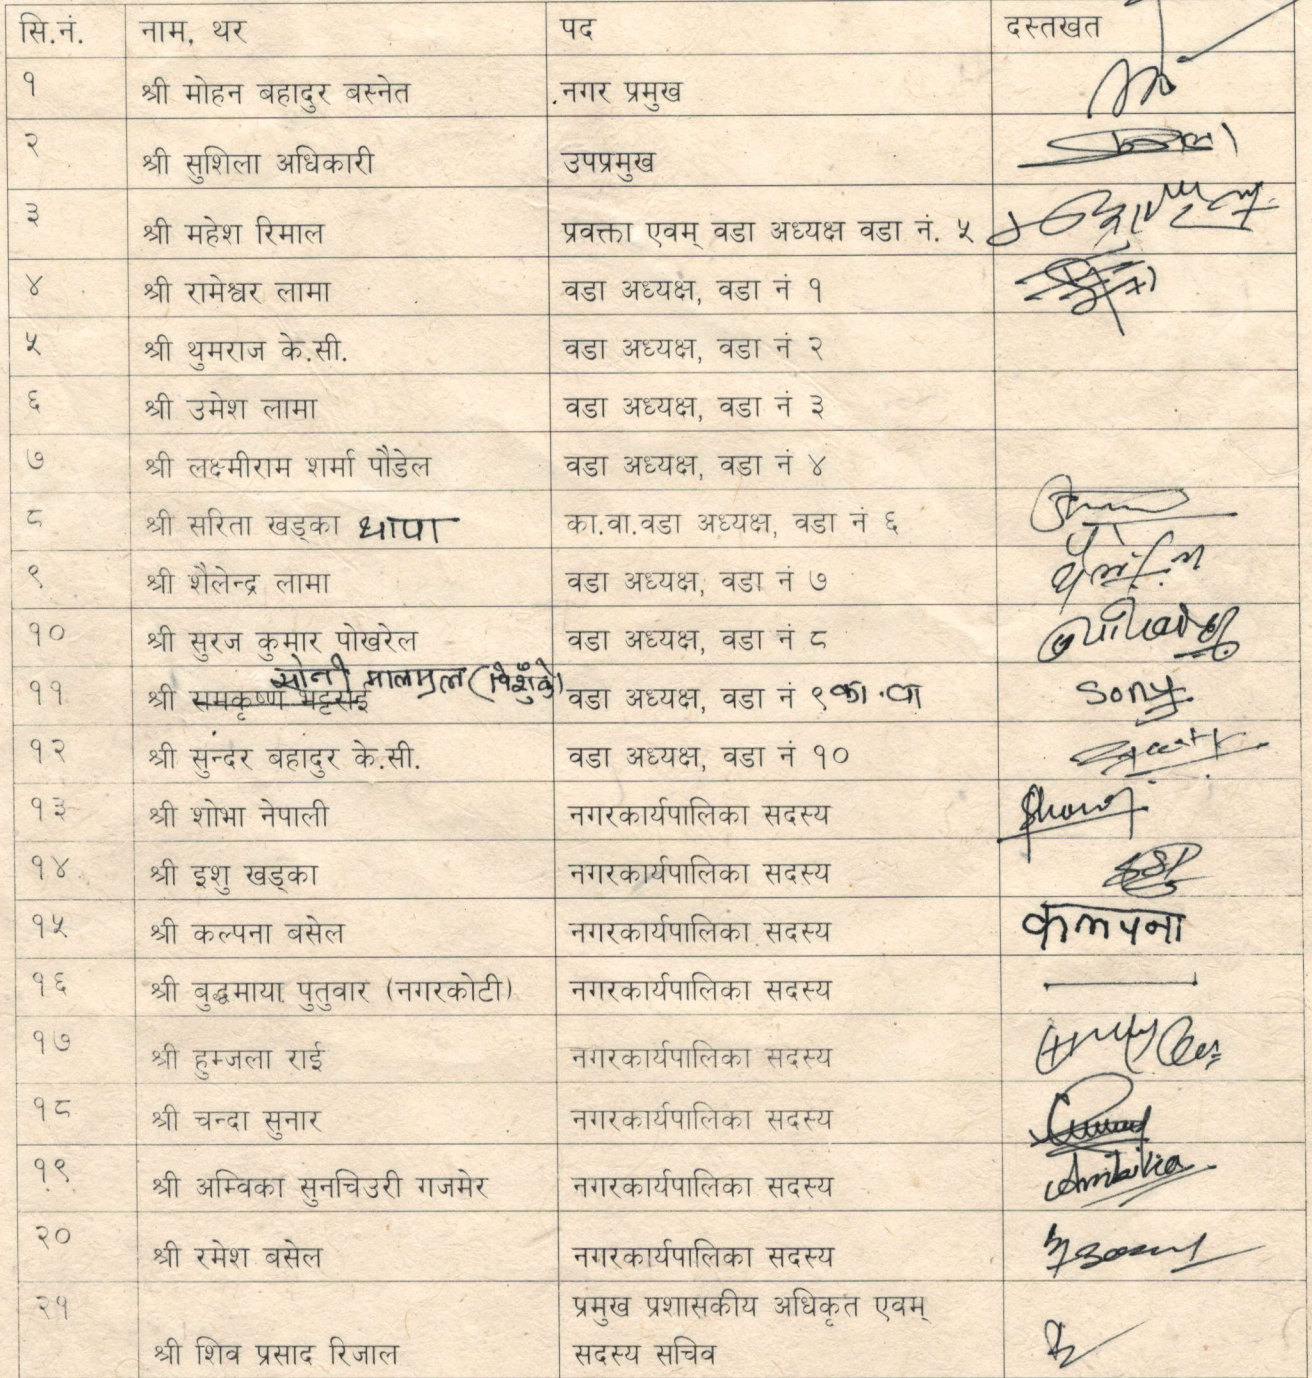 सि.नं. नाम, थर पद दस्तखत
१ श्री मोहन बहादुर बस्नेत नगर प्रमुख
२ श्री सुशिला अधिकारी उपप्रमुख
३ श्री महेश रिमाल प्रवक्ता एवम् वडा अध्यक्ष वडा नं. ५
४ श्री रामेश्वर लामा वडा अध्यक्ष, वडा नं १
५ श्री थुमराज के.सी. वडा अध्यक्ष, वडा नं २
६ श्री उमेश लामा वडा अध्यक्ष, वडा नं ३
७ श्री लक्ष्मीराम शर्मा पौडेल वडा अध्यक्ष, वडा नं ४
८ श्री सरिता खड्का थापा का.वा.वडा अध्यक्ष, वडा नं ६
९ श्री शैलेन्द्र लामा वडा अध्यक्ष, वडा नं ७
१० श्री सुरज कुमार पोखरेल वडा अध्यक्ष, वडा नं ८
सोनी
११ श्री वडा अध्यक्ष, वडा नं ९ का.वा Sony
१२ श्री सुन्दर बहादुर के.सी. वडा अध्यक्ष, वडा नं १०
१३ श्री शोभा नेपाली नगरकार्यपालिका सदस्य
१४ श्री इशु खड्का नगरकार्यपालिका सदस्य
१५ श्री कल्पना बसेल नगरकार्यपालिका सदस्य कल्पना
१६ श्री बुद्धमाया पुतुवार (नगरकोटी) नगरकार्यपालिका सदस्य
१७ श्री हुम्जला राई नगरकार्यपालिका सदस्य
१८ श्री चन्दा सुनार नगरकार्यपालिका सदस्य
१९ श्री अम्विका सुनचिउरी गजमेर नगरकार्यपालिका सदस्य Ambika
२० श्री रमेश बसेल नगरकार्यपालिका सदस्य
२१ प्रमुख प्रशासकीय अधिकृत एवम्
श्री शिव प्रसाद रिजाल सदस्य सचिव